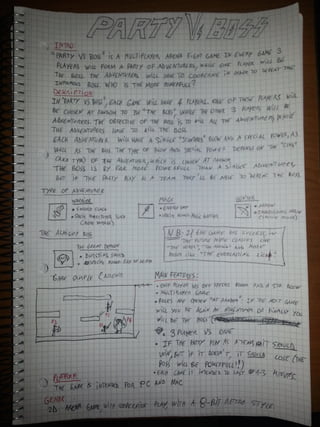 PARTY Vs BOSS
INTRO:
"PARTY VS BOSS" IS A MULTIPLAYER ARENA FIGHT GAME. IN EVERY GAME 3
PLAYERS WILL FORM A PARTY OF ADVENTURERS, WHILE ONE PLAYER WILL BE
THE BOSS. THE ADVENTURERS WILL HAVE TO COORDINATE IN ORDER TO DEFEAT THE
BOSS. WHO IS THE MORE POWERFUL?
DESCRIPTION:
IN "PARTY VS BOSS", EACH GAME WILL HAVE 4 PLAYERS. ONE OF THESE PLAYERS WILL
BE CHOSEN AT RANDOM TO BE "THE BOSS", WHILE THE OTHER 3 PLAYERS WILL BE
ADVENTURERS. THE OBJECTIVE OF THE BOSS IS TO KILL ALL THE ADVENTURERS, WHILE
THE ADVENTURERS HAVE TO KILL THE BOSS.
EACH ADVENTURER WILL HAVE A SINGLE BLOW AND A SPECIAL POWER, AS
WELL AS THE BOSS. THE TYPE OF BLOW AND SPECIAL POWER DEPENDS ON THE "CLASS"
(AKA TYPE) OF THE ADVENTURER, WHICH IS CHOSEN AT RANDOM.
THE BOSS IS BY FAR MORE POWERFUL THAN A SINGLE ADVENTURER,
BUT IF THE PARTY PLAY AS A TEAM THEY'LL BE ABLE TO DEFEAT THE BOSS.
TYPE OF ADVENTURER
WARRIOR
MAGE
HUNTER
THE ALMIGHTY BOSS
THE GREAT DEMON
N.B. IF THE GAME HAS SUCCESS, IN
THE FUTURE MORE CLASSES LIKE
BOSSES LIKE "THE EVERLASTING LICH".
GAME EXAMPLE
MAIN FEATURES:
- ONE PLAYER VS OTHER PLAYERS
- MULTIPLAYER GAME
- ROLES ARE CHOSEN AT RANDOM. IN THE NEXT GAME
YOU WILL BE AGAIN AN ADVENTURER OR FINALLY YOU
WILL BE THE BOSS
- 3 PLAYER VS ONE
- IF THE PARTY PLAY AS A TEAM IT SHOULD
WIN, BUT IF IT DOESN'T, IT SHOULD LOSE (THE
BOSS WILL BE POWERFUL!!)
- EACH GAME IS INTENDED TO LAST MINUTES.
PLATFORM
THE GAME IS INTENDED FOR PC AND MAC
GENRE
2D ARENA GAME WITH COOPERATIVE PLAY, WITH A 8-BIT RETRO STYLE.